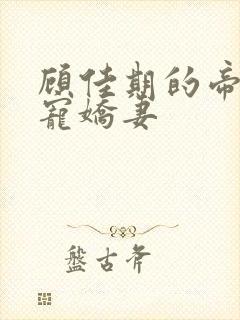 顾佳期的帝
寵嬌妻
盤古斧